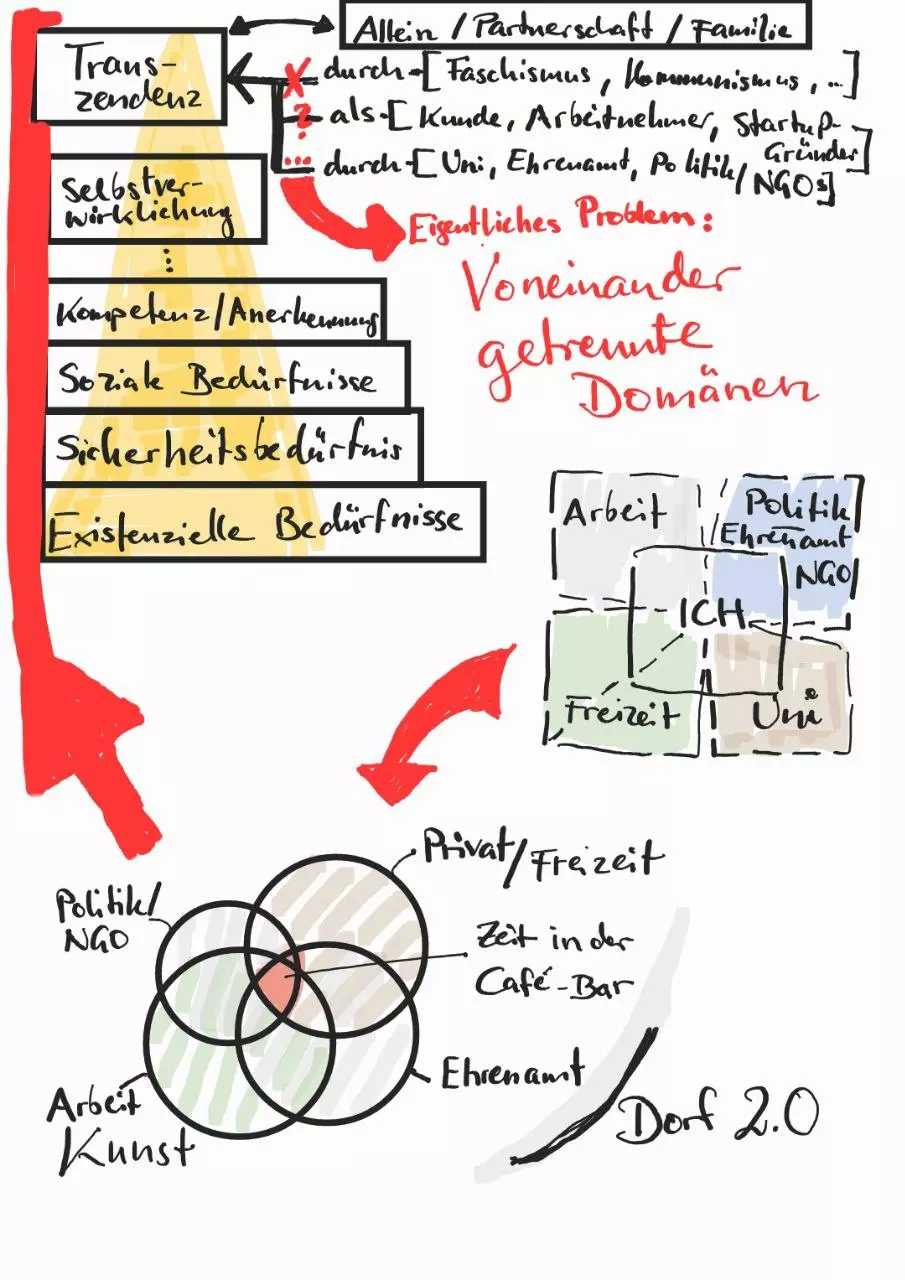 Allein / Partnerschaft / Familie
Trans-
zendenz
X durch [Faschismus, Kommunismus, ...]
? als [Kunde, Arbeitnehmer, Startup-
Gründer]
... durch [Uni, Ehrenamt, Politik/NGOs]
Selbstver-
wirklichung
⋮
Eigentliches Problem:
Voneinander
getrennte
Domänen
Kompetenz/Anerkennung
Soziale Bedürfnisse
Sicherheitsbedürfnis
Existenzielle Bedürfnisse
Arbeit
Politik
Ehrenamt
NGO
ICH
Freizeit
Uni
Privat/Freizeit
Politik/
NGO
Zeit in der
Café-Bar
Ehrenamt
Arbeit
Kunst
Dorf 2.0